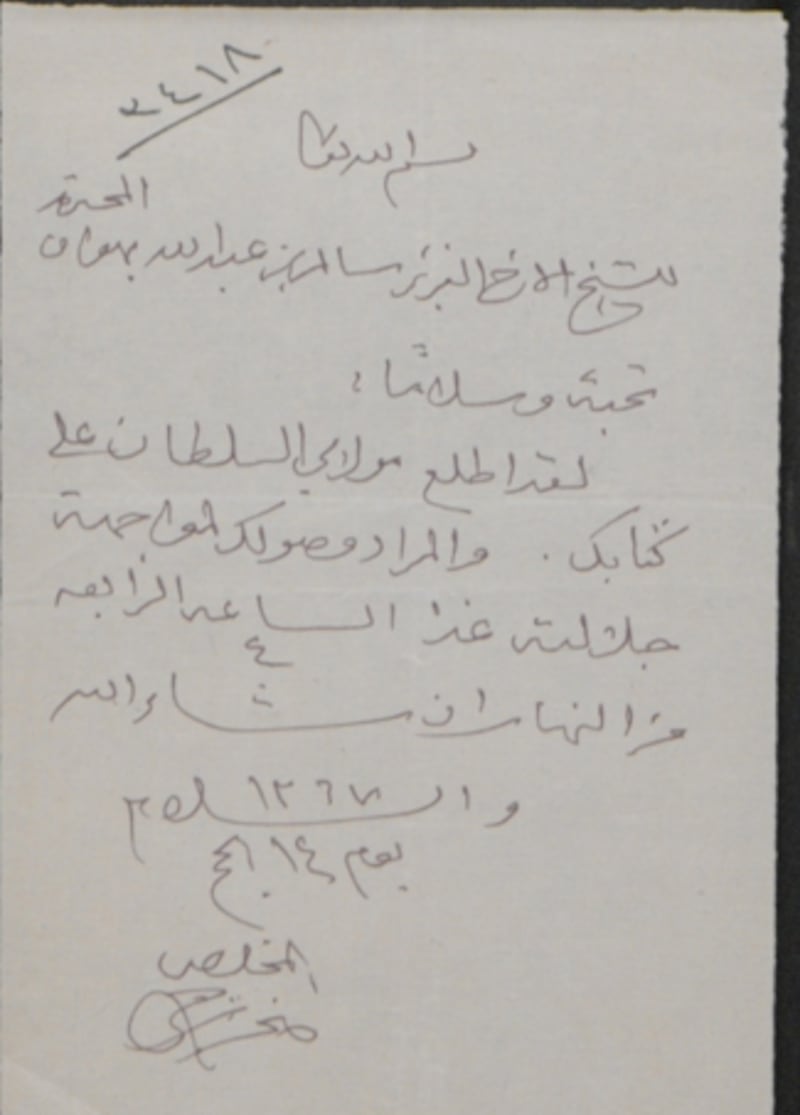 ٣٤١٨
بسم الله تعالى
المحترم
الشيخ الاخ العزيز سالم بن عبدالله بهوان
تحية وسلاما ؛
لقد اطلع مولاي السلطان على
كتابك . والمراد وصولك لمواجهة
جلالته غدا الساعه الرابعه
٤
من النهار ان شاء الله
والسلام ١٣٦٧
يوم ١٤ الحج
المخلص